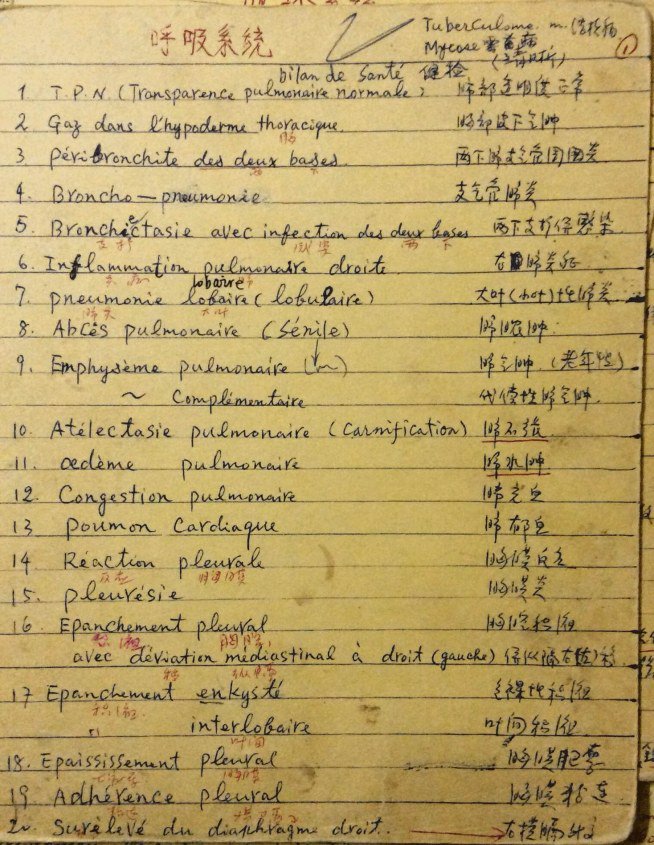 呼吸系统
Tuberculome. m. 结核病
Mycose
bilan de Santé 健检
①
1 T.P.N. (Transparence pulmonaire normale) 肺部透明度正常
2 Gaz dans l'hypoderme thoracique. 胸部皮下气肿
胸
3 péribronchite des deux bases. 两下肺支气管周围炎
4. Broncho—pneumonie 支气管肺炎
5. Bronchectasie avec infection des deux bases 两下支扩伴感染
支扩 感染 两 下
6. Inflammation pulmonaire droite. 右肺炎症
lobaire
7. pneumonie lobaire (lobulaire) 大叶(小叶)性肺炎
肺炎 大叶
8. Abcès pulmonaire (Sénile) 肺脓肿
9. Emphysème pulmonaire (〜) 肺气肿. (老年性)
~ Complémentaire 代偿性肺气肿.
10. Atélectasie pulmonaire (Carnification) 肺不张
11. œdème pulmonaire 肺水肿
12. Congestion pulmonaire 肺充血
13 poumon Cardiaque 肺郁血
14 Réaction pleurale 胸膜反应
反应 胸膜
15. pleurésie 胸膜炎
16. Epanchement pleural 胸腔积液
积液 胸腔
avec déviation médiastinal à droit (gauche) 伴纵隔右(左)移.
移 纵隔
17 Epanchement enkysté 包裹性积液
积液
" interlobaire 叶间积液.
叶间
18. Epaississement pleural 胸膜肥厚
胸膜
19 Adhérence pleural 胸膜粘连
粘连
20 Surélevé du diaphragme droit. 右横膈升高